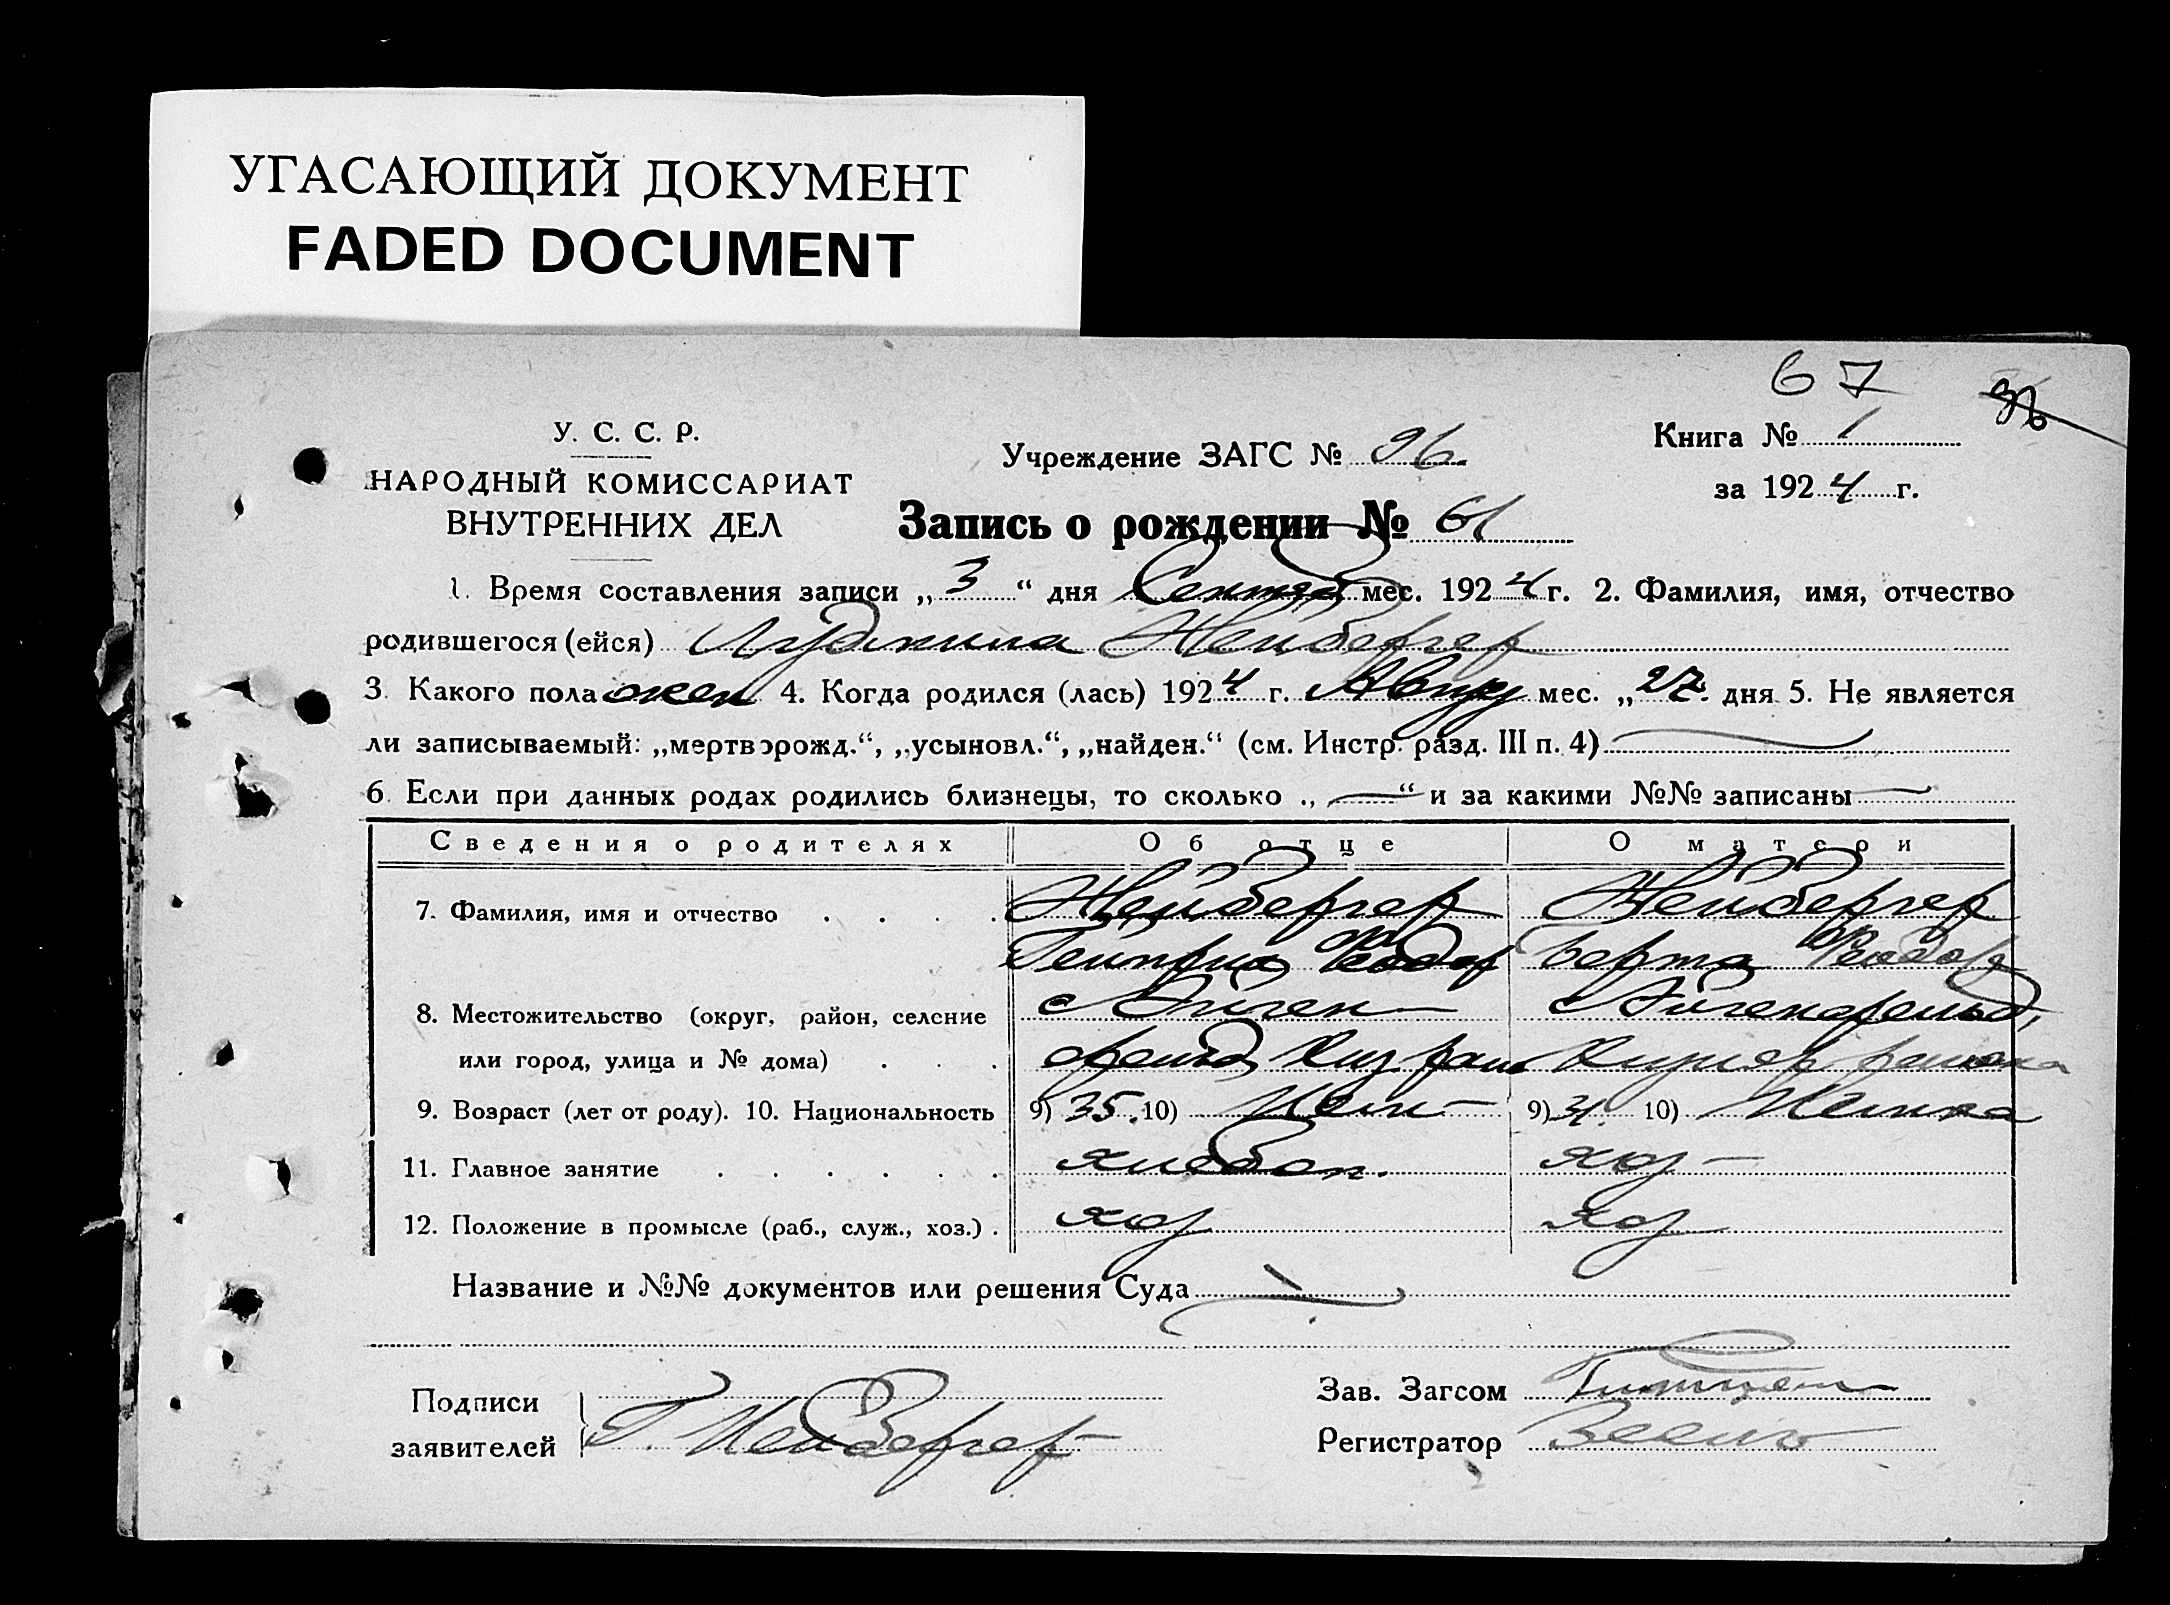 УГАСАЮЩИЙ ДОКУМЕНТ
FADED DOCUMENT
67
96
У. С. С. Р.
НАРОДНЫЙ КОМИССАРИАТ
ВНУТРЕННИХ ДЕЛ
Учреждение ЗАГС № 96.
Книга № 1
за 1924 г.
Запись о рождении № 61
1. Время составления записи „3“ дня Сентяб мес. 1924 г. 2. Фамилия, имя, отчество
родившегося (ейся) Людмила Нейбергер
3. Какого пола жен 4. Когда родился (лась) 1924 г. Август мес. „27. дня 5. Не является
ли записываемый: „мертворожд.“, „усыновл.“, „найден.“ (см. Инстр. разд. III п. 4)
6. Если при данных родах родились близнецы, то сколько „—“ и за какими №№ записаны —
Сведения о родителях Об отце О матери
7. Фамилия, имя и отчество Нейбергер Нейбергер
Гейнрих Феодор Берта Феодор
8. Местожительство (округ, район, селение с Айген- с Айгенфельд,
или город, улица и № дома) фельд,
9. Возраст (лет от роду). 10. Национальность 9) 35. 10) Нем- 9) 31. 10) Немка
11. Главное занятие хлебоп. хоз-
12. Положение в промысле (раб., служ., хоз.) хоз хоз
Название и №№ документов или решения Суда
Подписи
заявителей Г. Нейбергер
Зав. Загсом
Регистратор